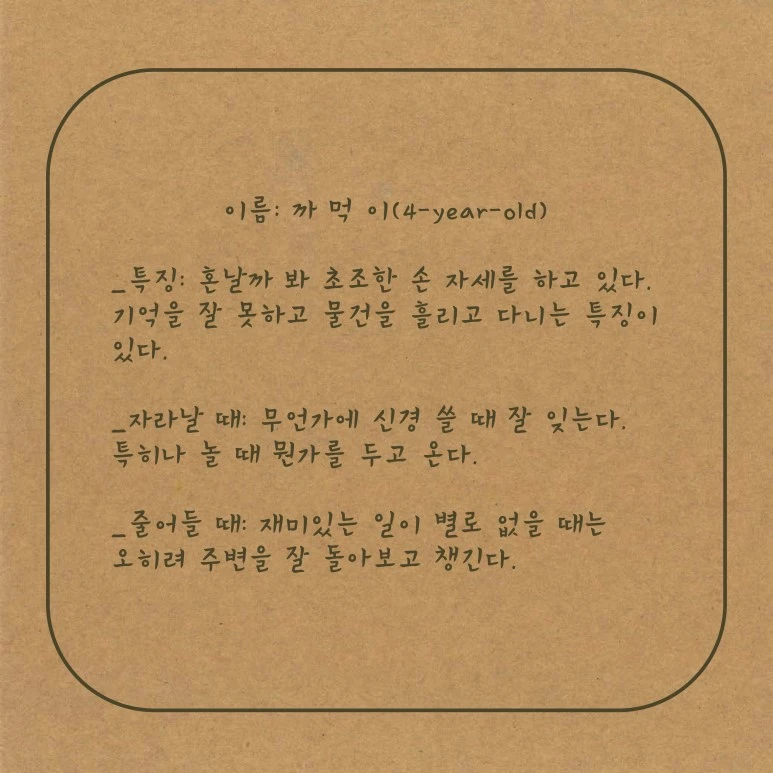 이름: 까 먹 이(4-year-old)
_특징: 혼날까 봐 초조한 손 자세를 하고 있다.
기억을 잘 못하고 물건을 흘리고 다니는 특징이
있다.
_자라날 때: 무언가에 신경 쓸 때 잘 잊는다.
특히나 놀 때 뭔가를 두고 온다.
_줄어들 때: 재미있는 일이 별로 없을 때는
오히려 주변을 잘 돌아보고 챙긴다.